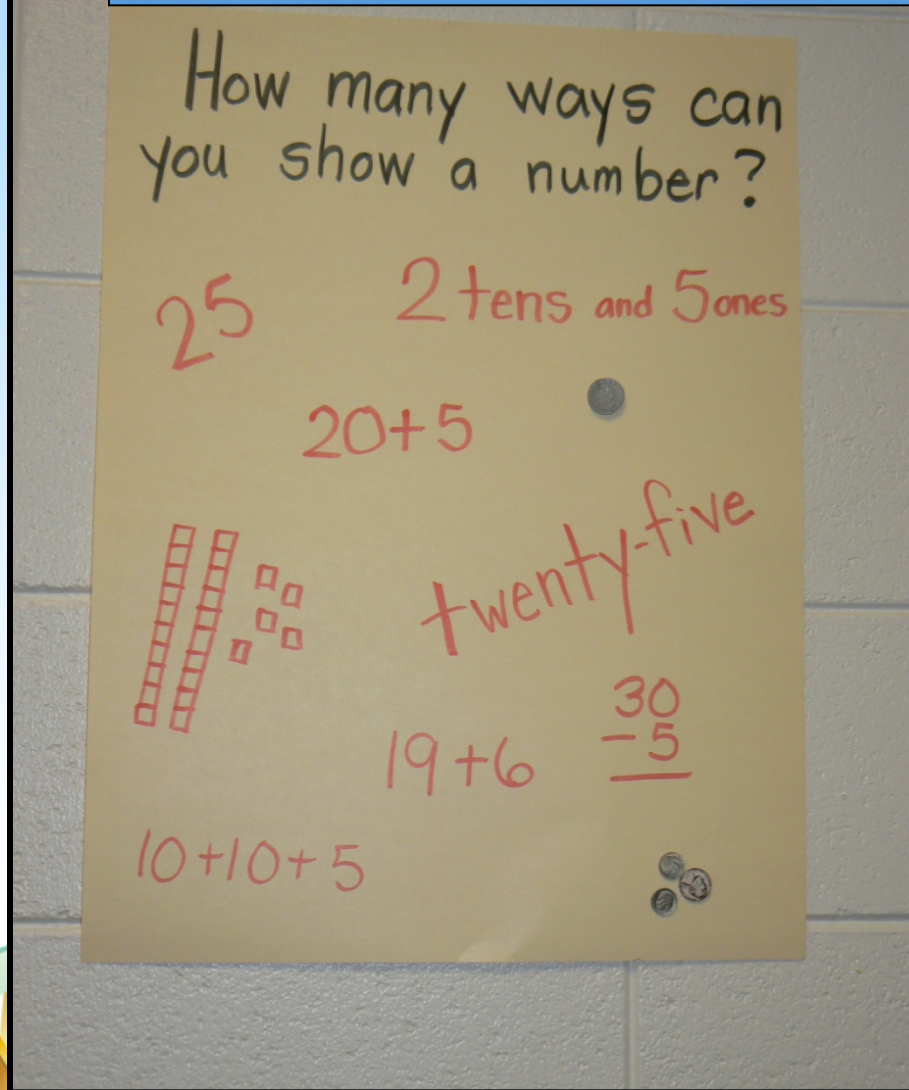 How many ways can
you show a number?
25
2 tens and 5 ones
20+5
twenty-five
30
-5
19+6
10+10+5